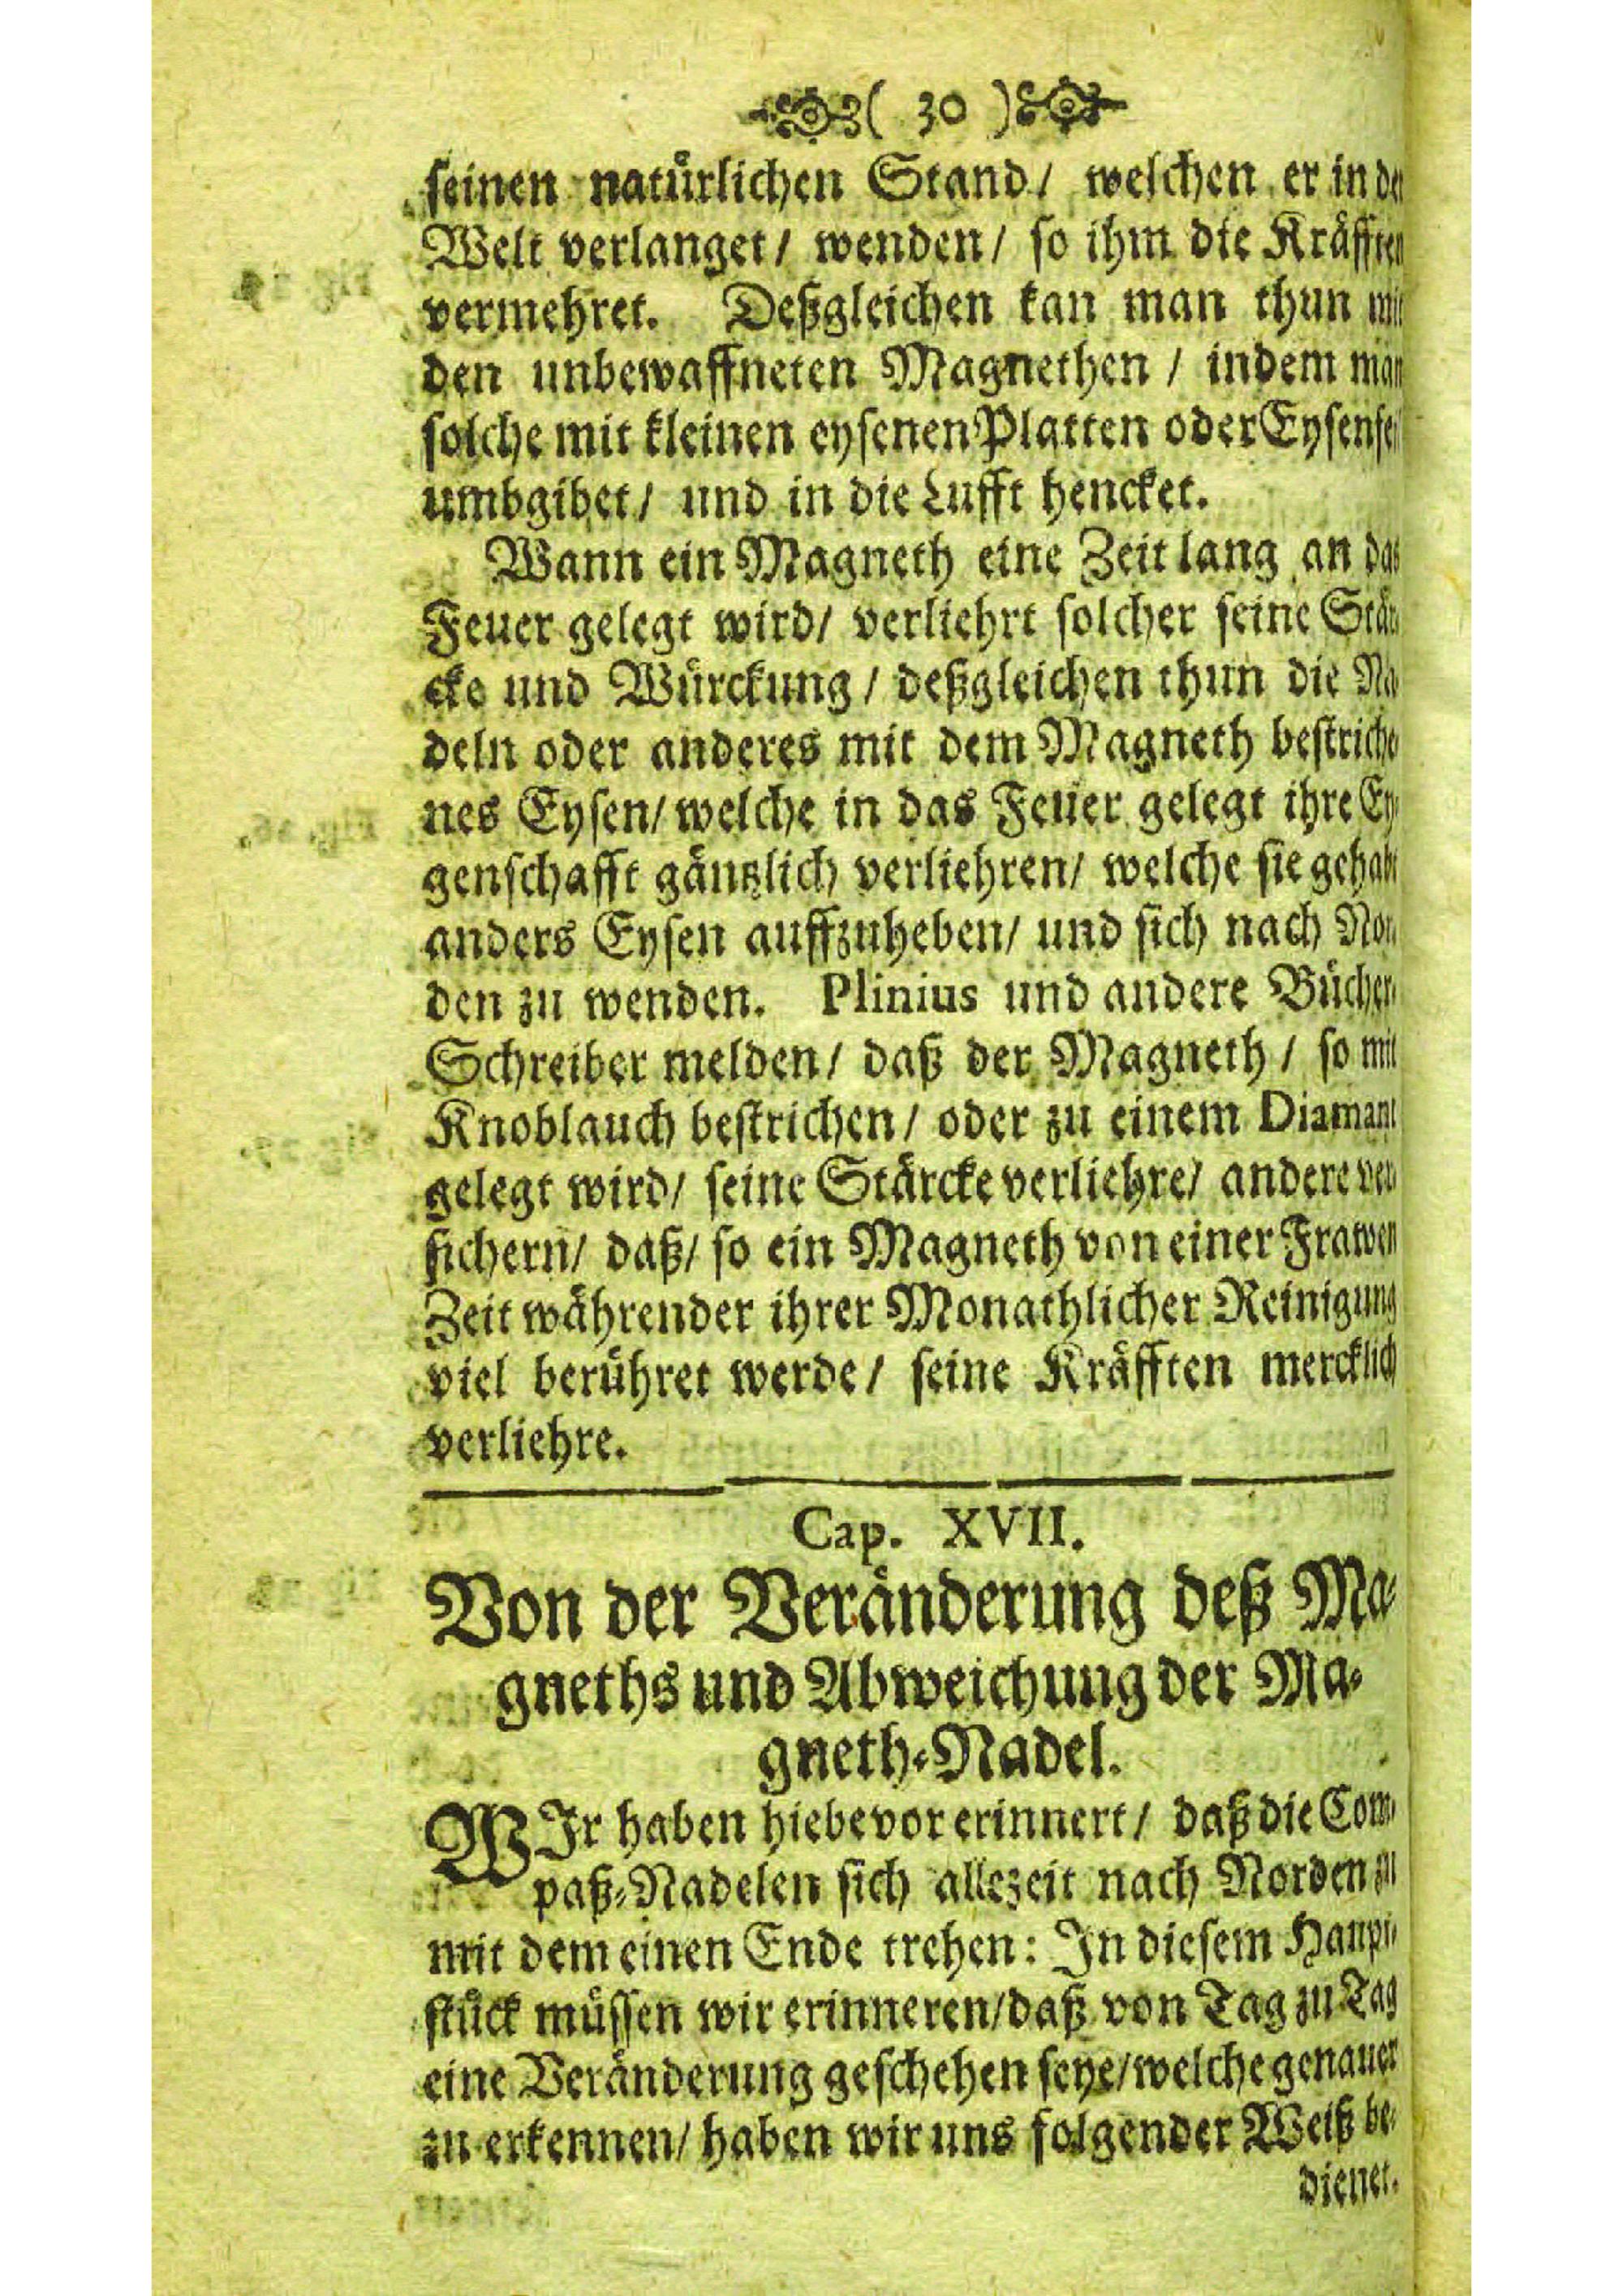 ( 30 )
seinen natürlichen Stand/ welchen er in der
Welt verlanget/ wenden/ so ihm die Kräfften
vermehret. Deßgleichen kan man thun mit
den unbewaffneten Magnethen / indem man
solche mit kleinen eysenen Platten oder
umbgibet/ und in die Lufft hencket.
Wann ein Magneth eine Zeit lang an das
Feuer gelegt wird/ verliehrt solcher seine Stär-
cke und Würckung / deßgleichen thun die Na-
deln oder anderes mit dem Magneth bestriche-
nes Eysen/ welche in das Feuer gelegt ihre Ey-
genschafft gäntzlich verliehren/ welche sie gehabt
anders Eysen auffzuheben/ und sich nach Nor-
den zu wenden. Plinius und andere Bücher-
Schreiber melden/ daß der Magneth / so mit
Knoblauch bestrichen/ oder zu einem Diamant
gelegt wird/ seine Stärcke verliehre/ andere ver-
sichern/ daß/ so ein Magneth von einer Frawen
Zeit währender ihrer Monathlicher Reinigung
viel berühret werde/ seine Kräfften mercklich
verliehre.
Cap. XVII.
Von der Veränderung deß Ma-
gneths und Abweichung der Ma-
gneth-Nadel.
WIr haben hiebevor erinnert/ daß die Com-
paß-Nadelen sich allezeit nach Norden zu
mit dem einen Ende trehen: In diesem Haupt-
stück müssen wir erinneren/ daß von Tag zu Tag
eine Veränderung geschehen seye/ welche genauer
zu erkennen/ haben wir uns folgender Weiß be-
dienet.